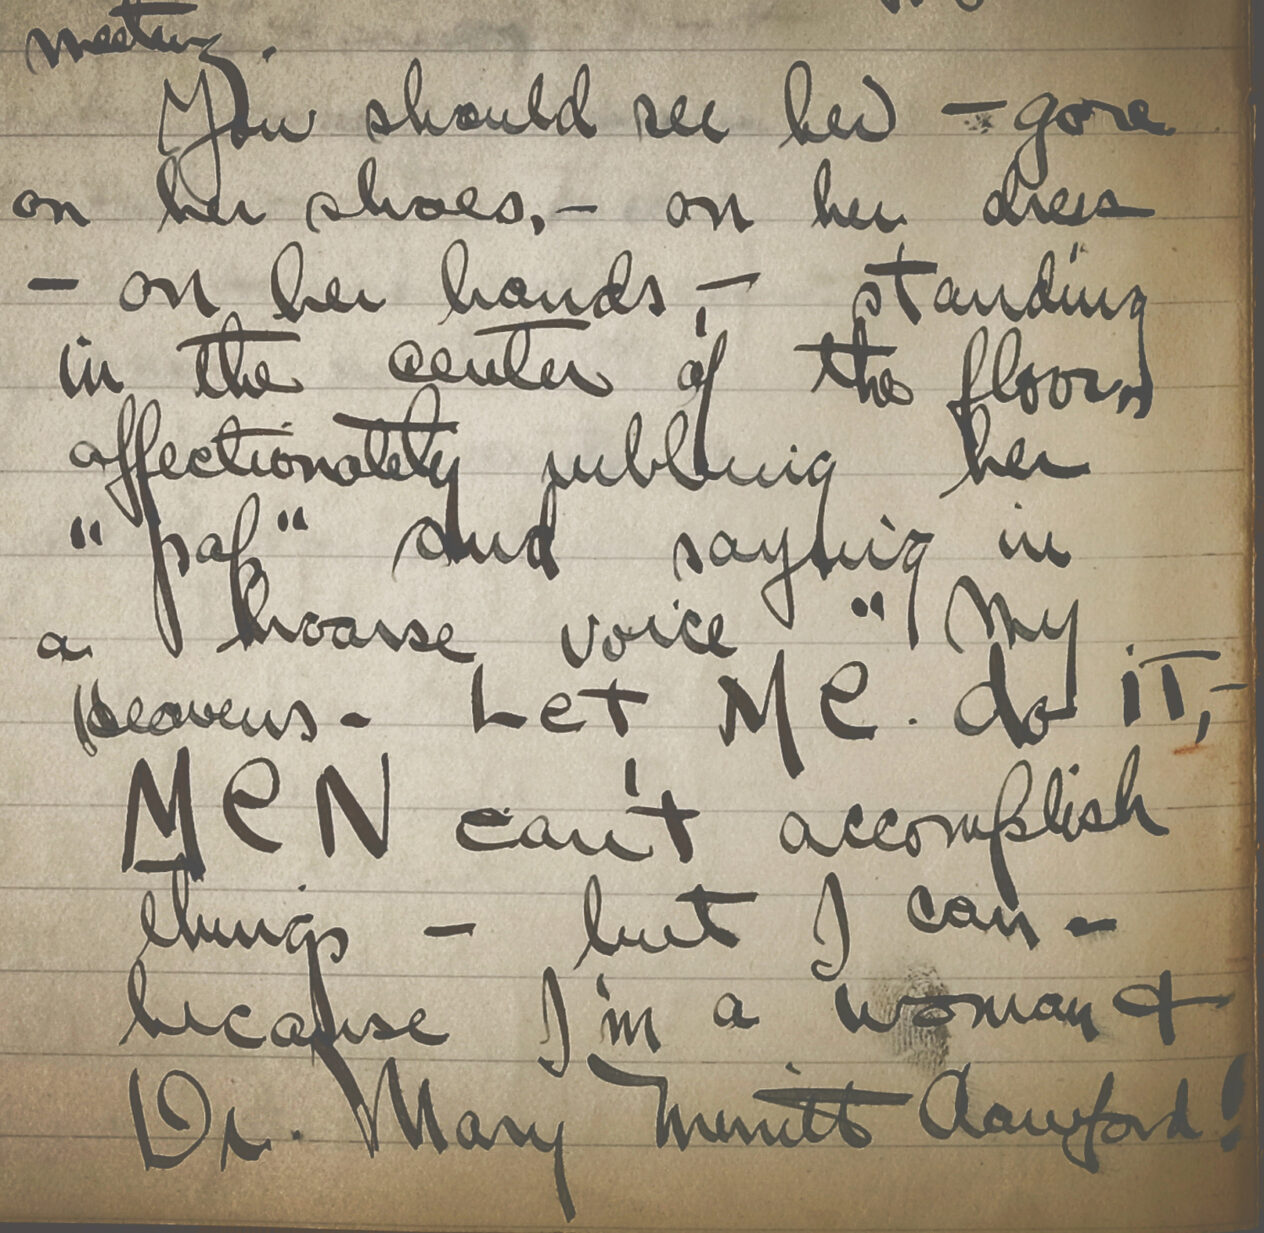 meeting.
You should see her - gore
on her shoes, - on her dress
- on her hands, - standing
in the center of the floor,
affectionately rubbing her
"paf" and saying in
a hoarse voice "My
heavens - Let ME do iT, -
MEN can't accomplish
things - but I can -
because I'm a woman +
Dr. Mary Merritt Crawford!